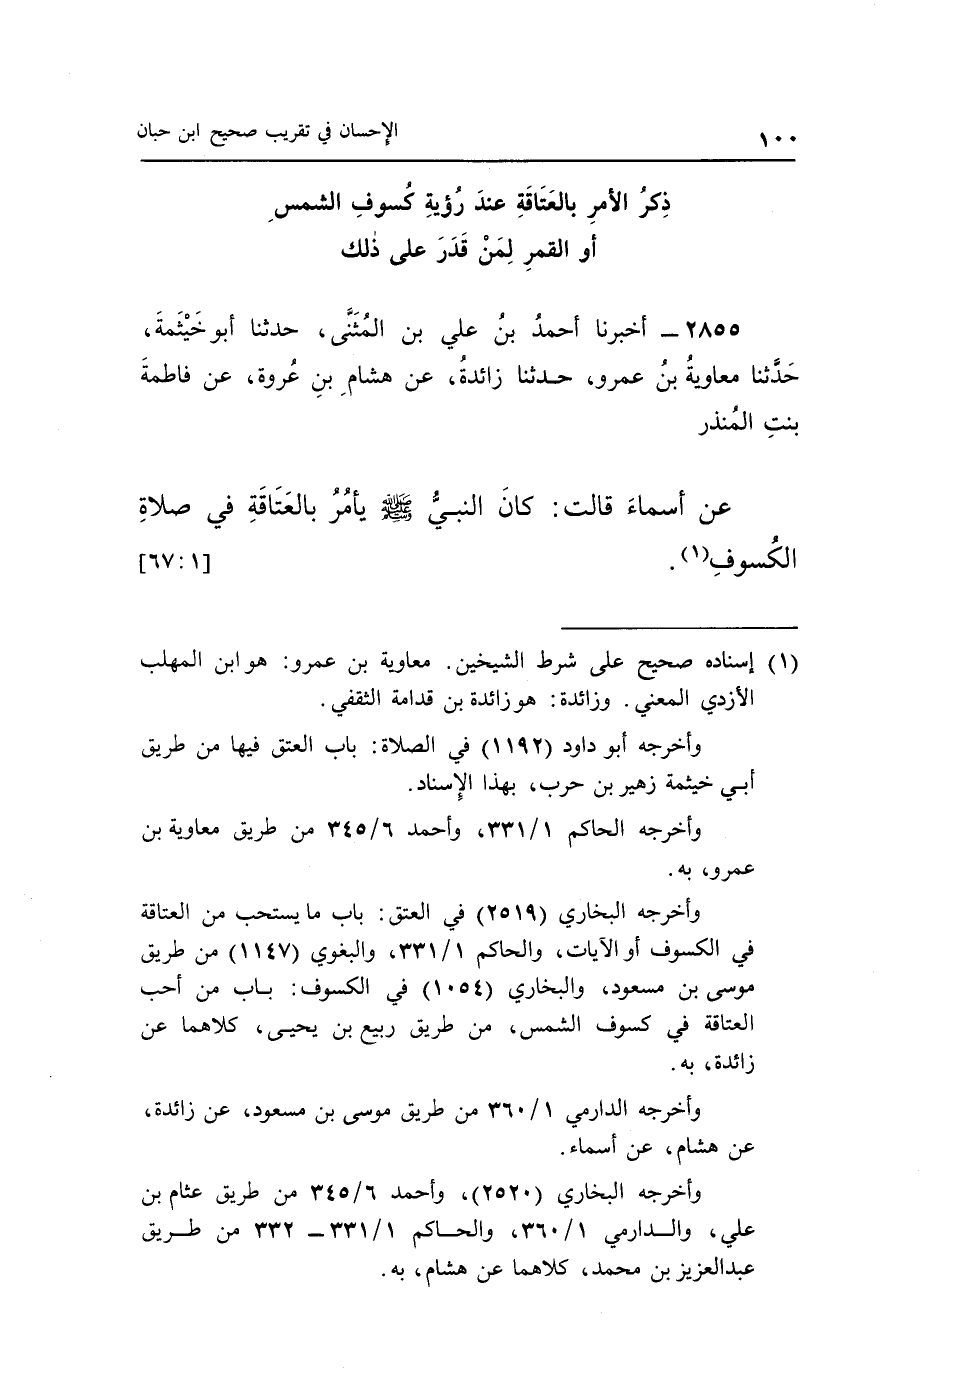 ١٠٠ الإحسان في تقريب صحيح ابن حبان
ذِكرُ الأمرِ بالعَتَاقَةِ عندَ رُؤيةِ كُسوفِ الشمسِ
أو القمرِ لِمَنْ قَدَرَ على ذٰلك
٢٨٥٥ ـ أخبرنا أحمدُ بنُ علي بن المُثَنَّى، حدثنا أبو خَيْثَمةَ،
حَدَّثنا معاويةُ بنُ عمرو، حـدثنا زائدةُ، عن هشامِ بنِ عُروة، عن فاطمةَ
بنتِ المُنذر
عن أسماءَ قالت: كانَ النبـيُّ ﷺ يأمُرُ بالعَتَاقَةِ في صلاةِ
الكُسوفِ(١). [٦٧:١]
(١) إسناده صحيح على شرط الشيخين. معاوية بن عمرو: هو ابن المهلب
الأزدي المعني. وزائدة: هو زائدة بن قدامة الثقفي.
وأخرجه أبو داود (١١٩٢) في الصلاة: باب العتق فيها من طريق
أبـي خيثمة زهير بن حرب، بهذا الإِسناد.
وأخرجه الحاكم ٣٣١/١، وأحمد ٣٤٥/٦ من طريق معاوية بن
عمرو، به.
وأخرجه البخاري (٢٥١٩) في العتق: باب ما يستحب من العتاقة
في الكسوف أو الآيات، والحاكم ٣٣١/١، والبغوي (١١٤٧) من طريق
موسى بن مسعود، والبخاري (١٠٥٤) في الكسوف: بـاب من أحب
العتاقة في كسوف الشمس، من طريق ربيع بن يحيـى، كلاهما عن
زائدة، به.
وأخرجه الدارمي ٣٦٠/١ من طريق موسى بن مسعود، عن زائدة،
عن هشام، عن أسماء.
وأخرجه البخاري (٢٥٢٠)، وأحمد ٣٤٥/٦ من طريق عثام بن
علي، والـدارمي ٣٦٠/١، والحـاكم ٣٣١/١ ـ ٣٣٢ من طـريق
عبدالعزيز بن محمد، كلاهما عن هشام، به.